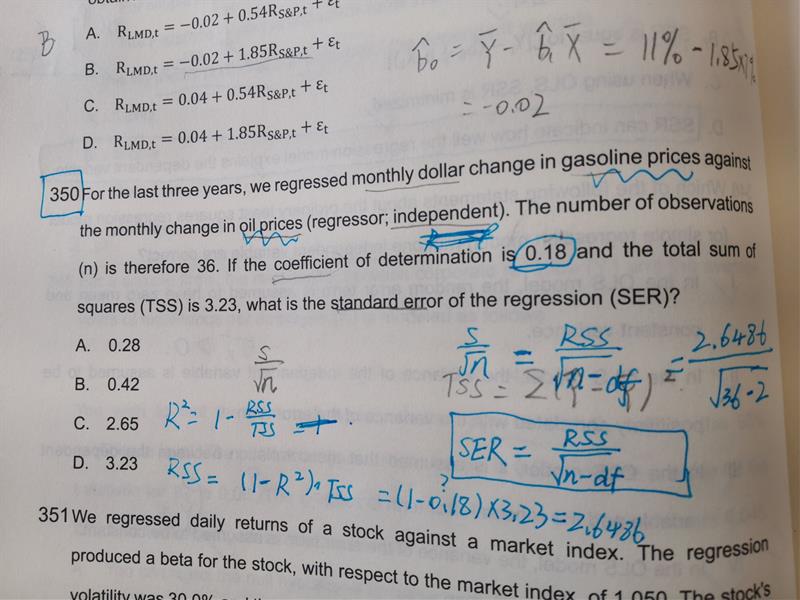 B
A. R_LMD,t = −0.02 + 0.54R_S&P,t + ε_t
B. R_LMD,t = −0.02 + 1.85R_S&P,t + ε_t
C. R_LMD,t = 0.04 + 0.54R_S&P,t + ε_t
D. R_LMD,t = 0.04 + 1.85R_S&P,t + ε_t
b̂₀ = Ȳ - b̂₁ X̄ = 11% - 1.85×7%
= -0.02
350 For the last three years, we regressed monthly dollar change in gasoline prices against
the monthly change in oil prices (regressor; independent). The number of observations
(n) is therefore 36. If the coefficient of determination is 0.18 and the total sum of
squares (TSS) is 3.23, what is the standard error of the regression (SER)?
A. 0.28
B. 0.42
C. 2.65
D. 3.23
S/√n
S/√n = RSS/√n-df = 2.6486/√36-2
TSS = Σ(Y - Ȳ)²
R² = 1 - RSS/TSS =
SER = RSS/√n-df
RSS = (1-R²)·TSS = (1-0.18)×3.23=2.6486
?
351 We regressed daily returns of a stock against a market index. The regression
produced a beta for the stock, with respect to the market index, of 1.050. The stock's
volatility was 30.0%